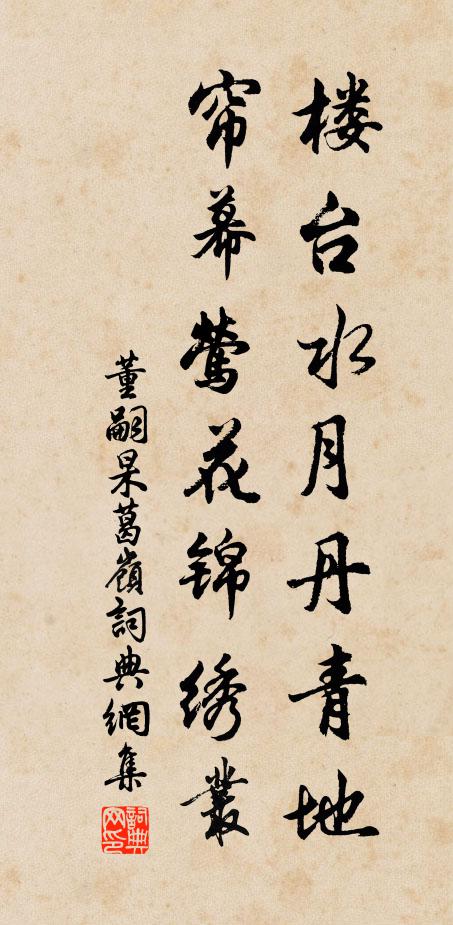 楼台水月丹青地
帘幕莺花锦绣丛
董嗣杲葛嶺詞典網集
詞典网印